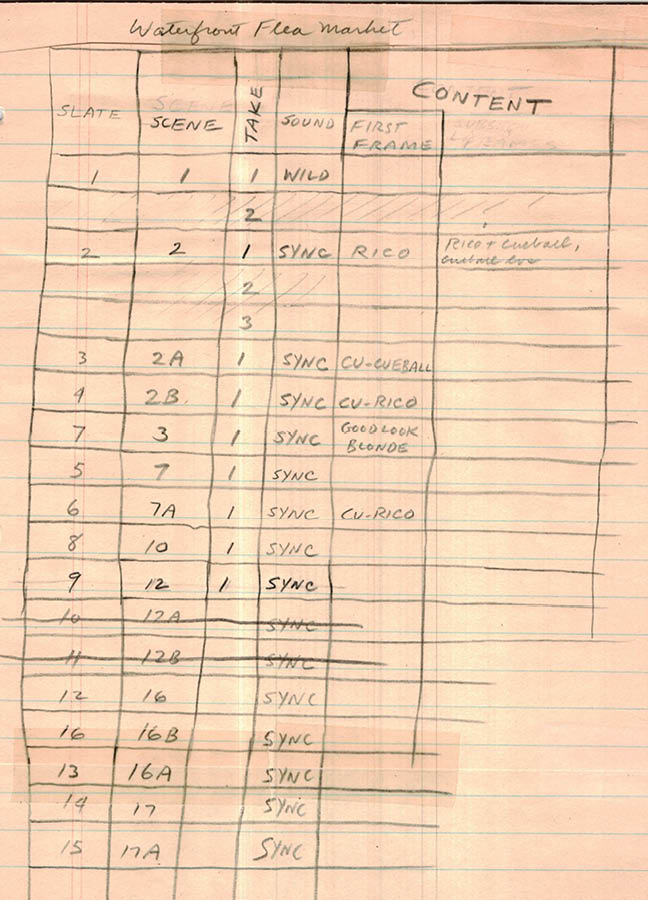 Waterfront Flea Market
SLATE SCENE TAKE SOUND CONTENT
SCENE
FIRST FRAME
1 1 1 WILD
2
2 2 1 SYNC RICO Rico + Cueball,
Cueball
2
3
3 2A 1 SYNC CU-CUEBALL
4 2B 1 SYNC CU-RICO
7 3 1 SYNC GOODLOOK BLONDE
5 7 1 SYNC
6 7A 1 SYNC CU-RICO
8 10 1 SYNC
9 12 1 SYNC
10 12A SYNC
11 12B SYNC
12 16 SYNC
16 16B SYNC
13 16A SYNC
14 17 SYNC
15 17A SYNC